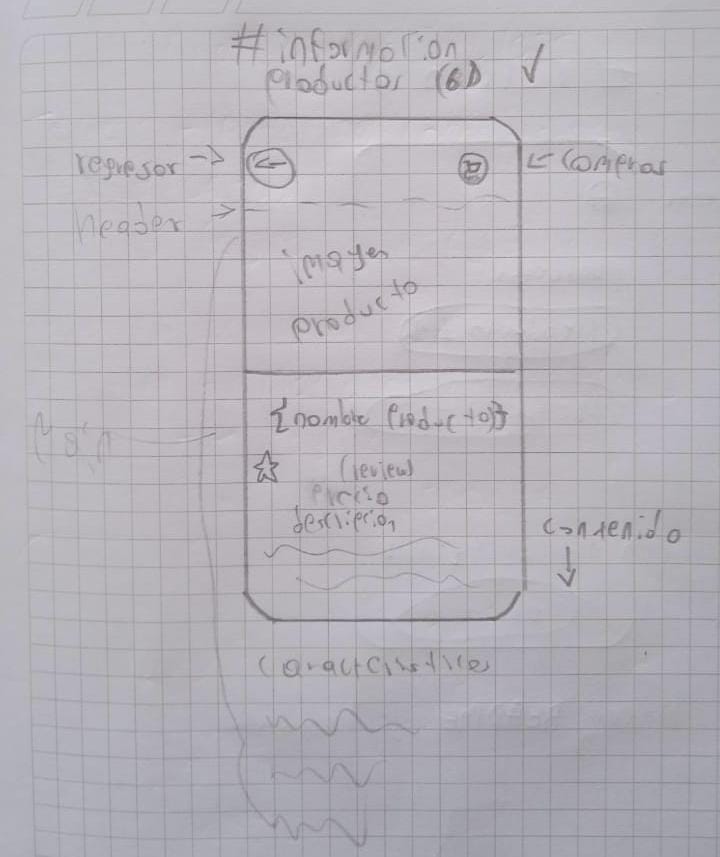 # información
productos (6) ✓
regresor →
← compras
header →
imagen
producto
{nombre producto}
Main
(review)
precio
descripcion
contenido
↓
caracteristicas